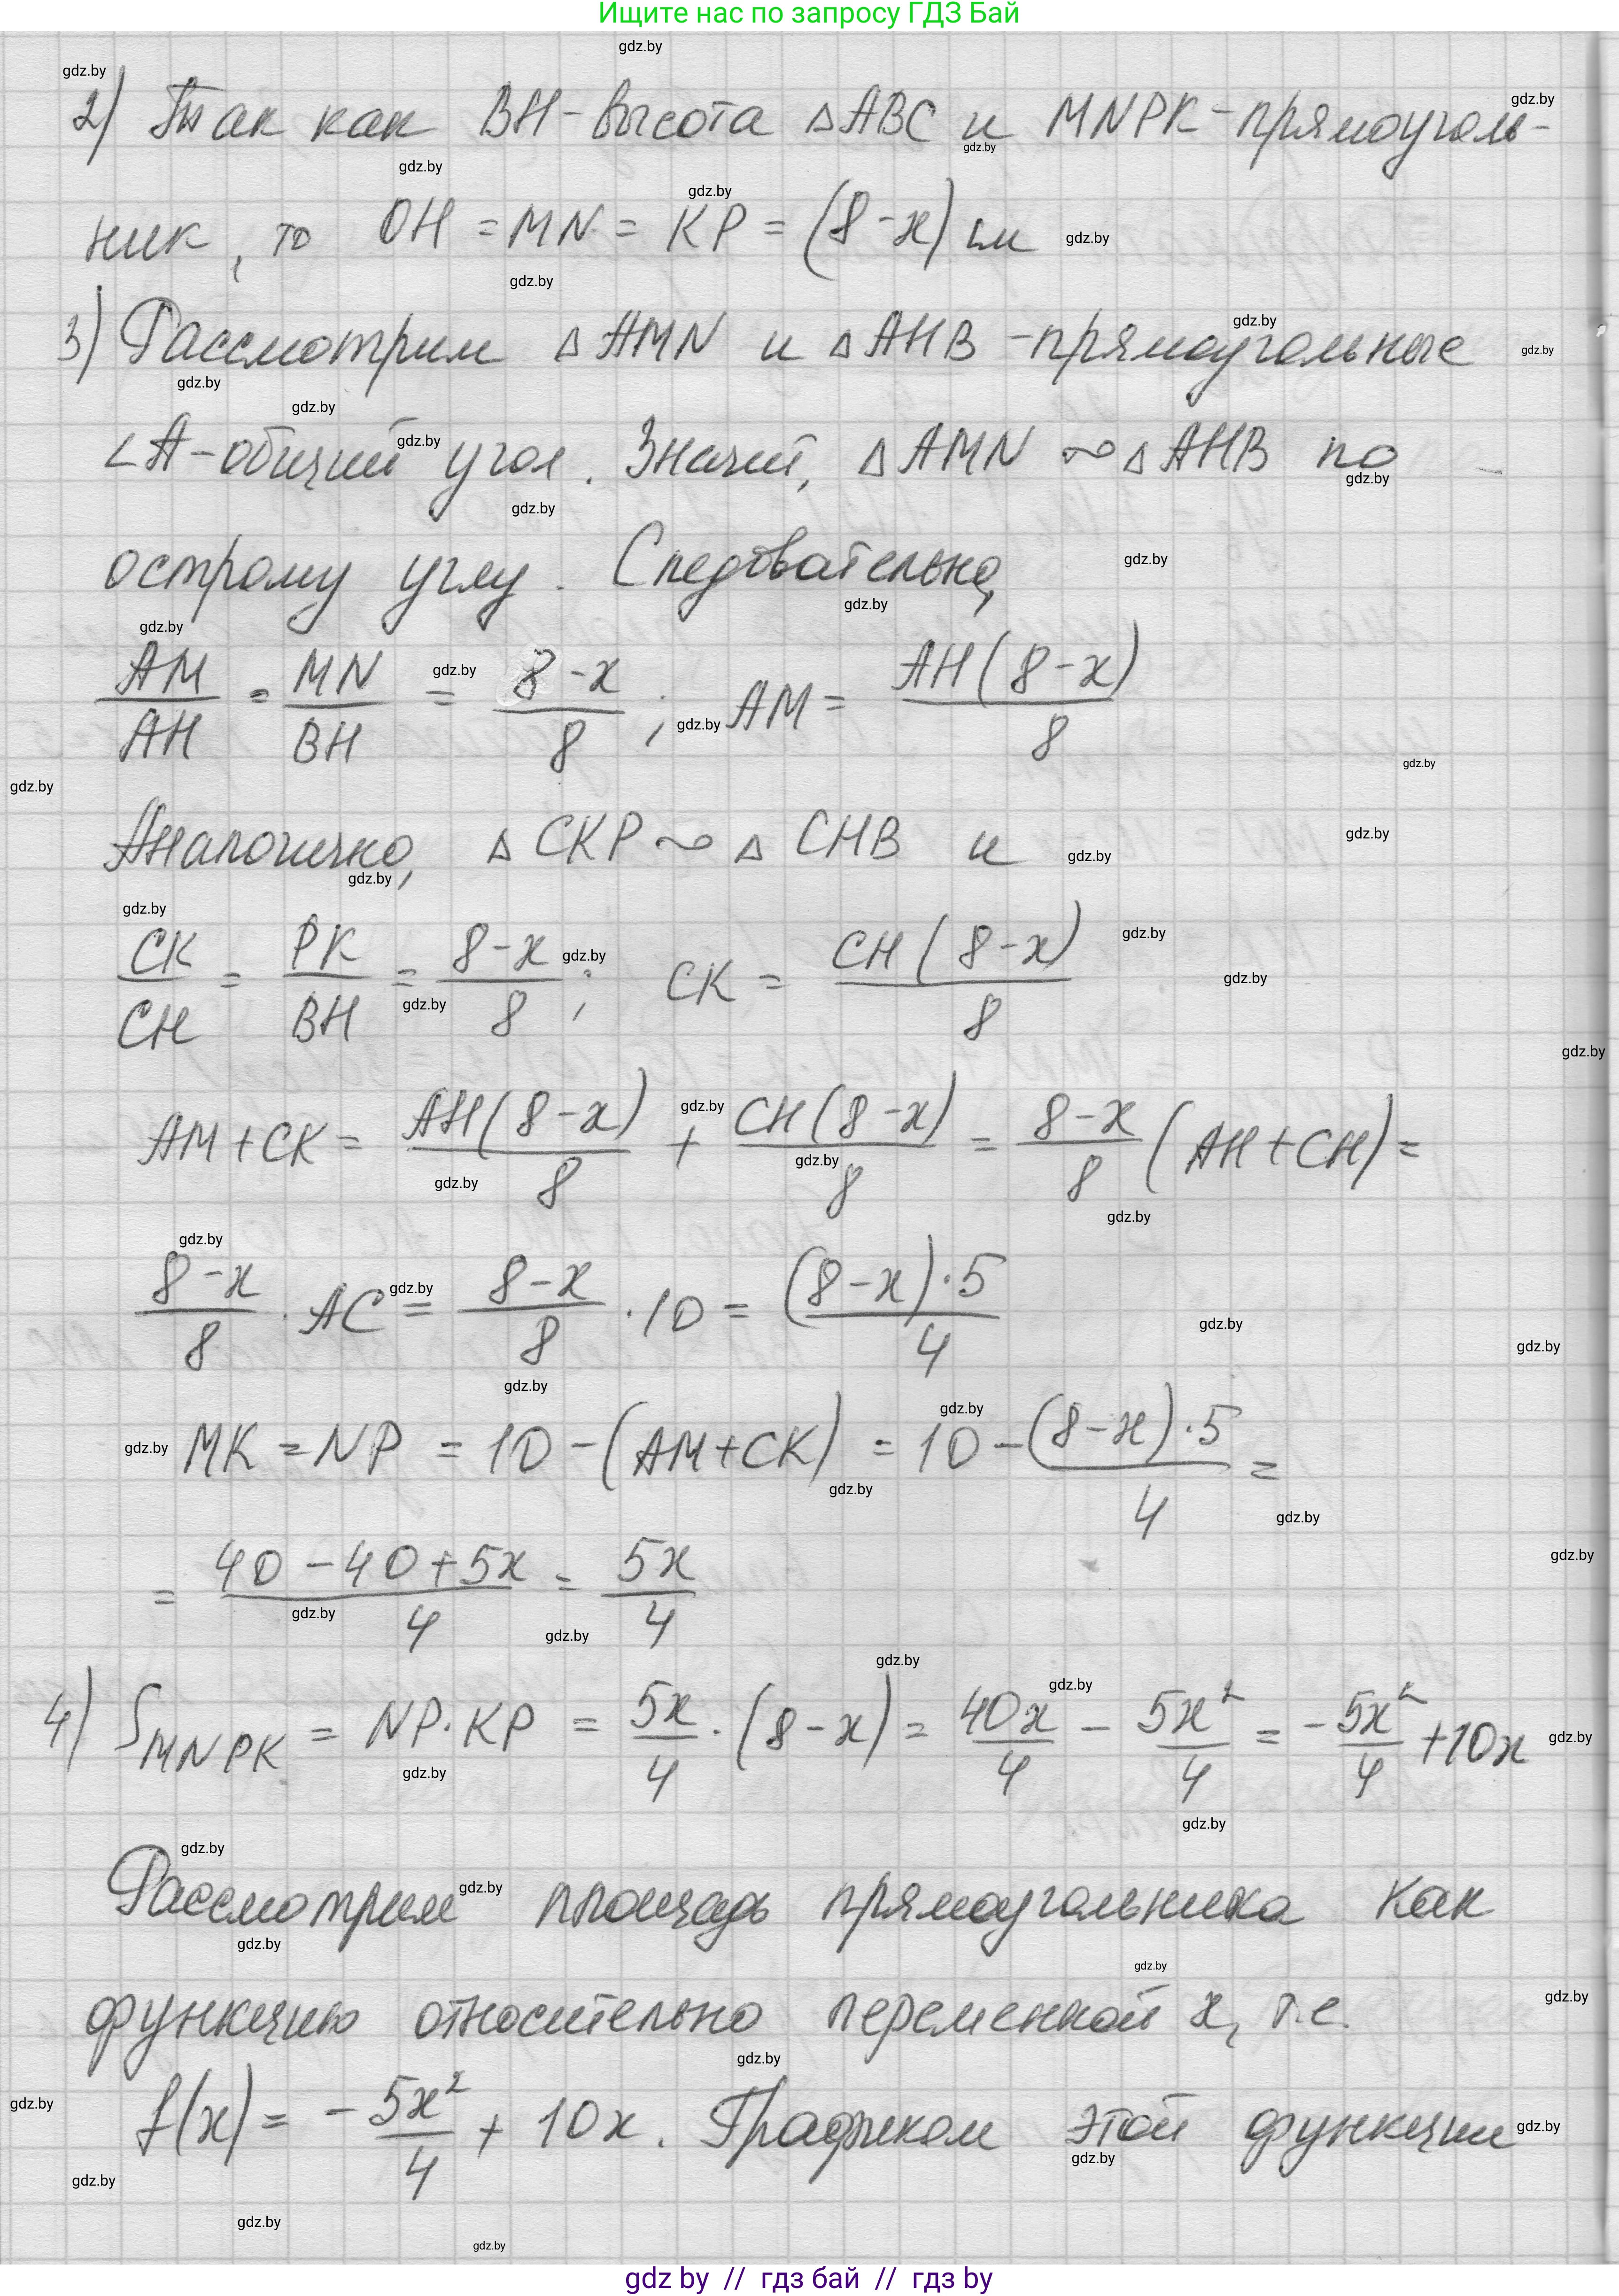 Ищите нас по запросу ГДЗ Бай
2) Так как BH-высота △ABC и MNPK-прямоуголь-
ник, то OH = MN = KP = (8-x) см
3) Рассмотрим △AMN и △AHB -прямоугольные
∠A-общий угол. Значит, △AMN ∾ △AHB по
острому углу. Следовательно,
AM/AH = MN/BH = 8-x/8 ; AM = AH(8-x)/8
Аналогично, △CKP ∾ △CHB и
CK/CH = PK/BH = 8-x/8 ; CK = CH(8-x)/8
AM+CK = AH(8-x)/8 + CH(8-x)/8 = 8-x/8 (AH+CH) =
8-x/8 · AC = 8-x/8 · 10 = (8-x)·5/4
MK = NP = 10 - (AM+CK) = 10 - (8-x)·5/4 =
= 40-40+5x/4 = 5x/4
4) S MNPK = NP·KP = 5x/4 · (8-x) = 40x/4 - 5x²/4 = -5x²/4 +10x
Рассмотрим площадь прямоугольника как
функцию относительно переменной x, т.е.
f(x) = -5x²/4 + 10x. Графиком этой функции
gdz by // гдз бай // гдз by